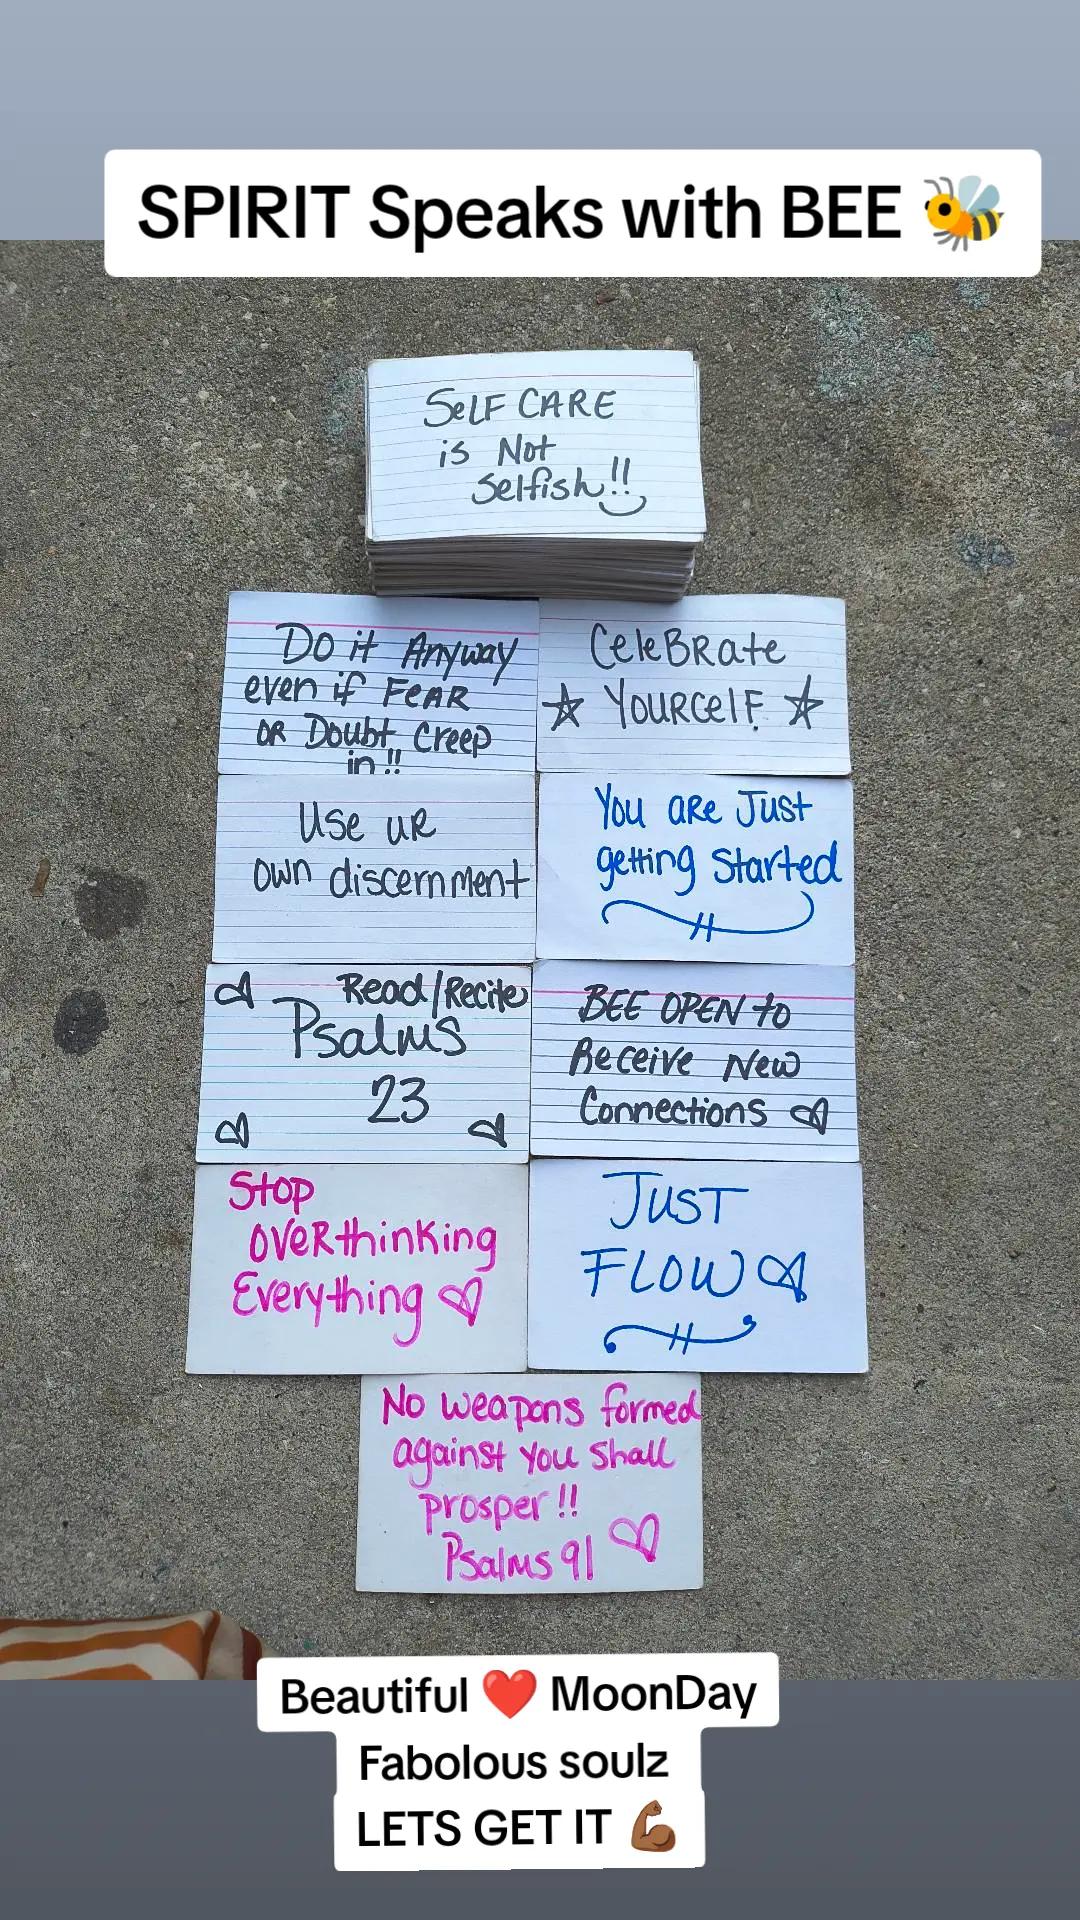 SPIRIT Speaks with BEE 🐝
SeLF CARE
is Not
Selfish!!
Do it Anyway
even if FeAR
OR Doubt Creep
in!!
CeleBRate
☆ YOURCelF ☆
Use uR
own discernment
You aRe Just
getting Started
Read/Recite
Psalms
23
BEE OPEN to
Receive New
Connections ♡
Stop
OVeRthinking
Everything ♡
JUST
FLOW ♡
No weapons formed
against you shall
prosper!!
Psalms 91 ♡
Beautiful ❤️ MoonDay
Fabolous soulz
LETS GET IT 💪🏾